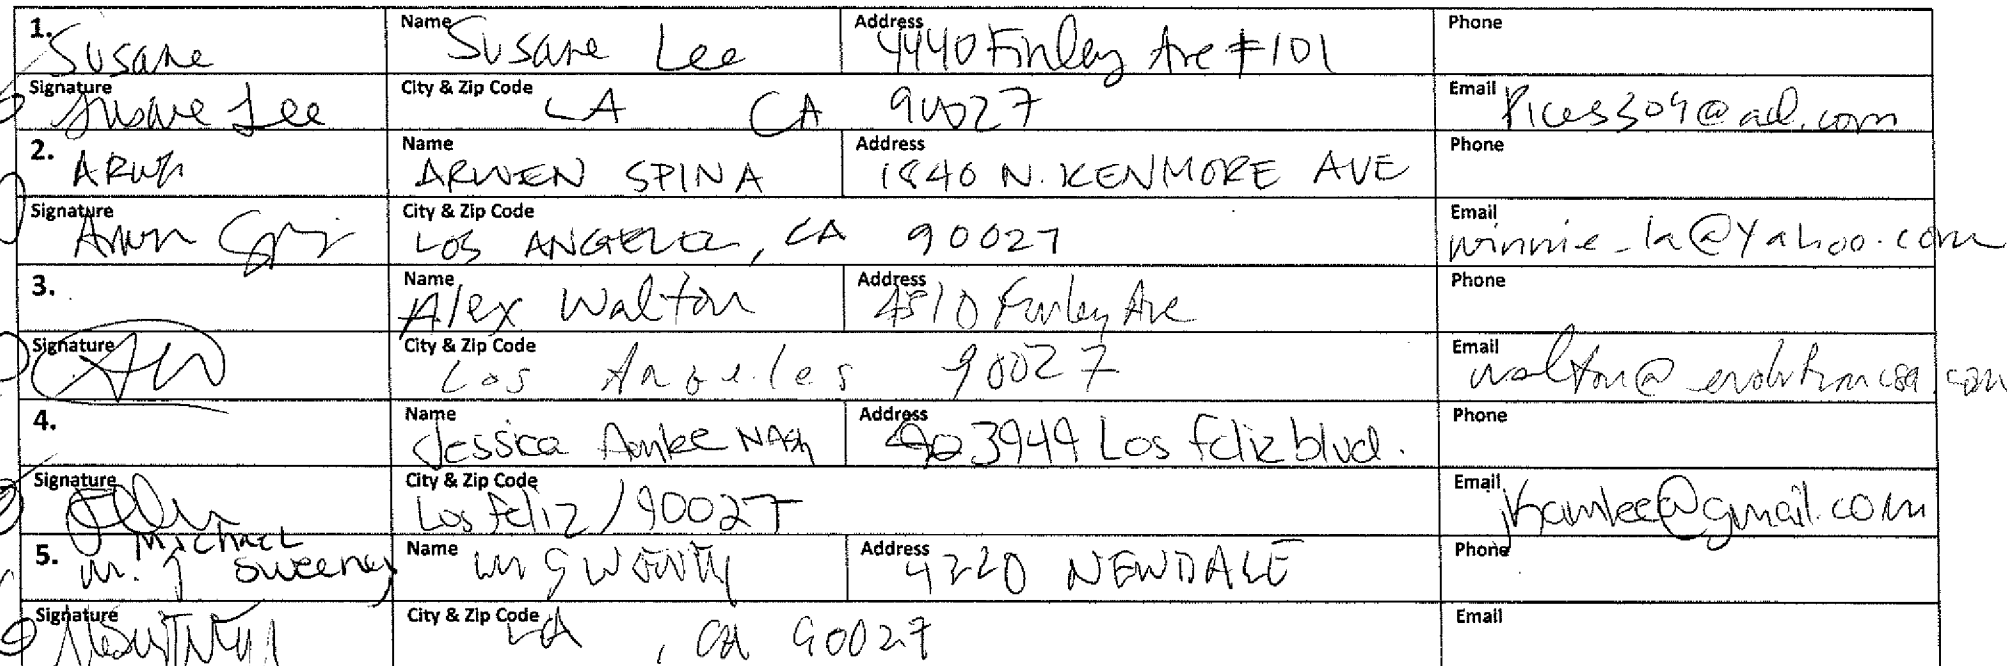 1. Susane Name Susane Lee Address 4440 Finley Ave #101 Phone
Signature Susane Lee City & Zip Code LA CA 90027 Email
2. Name ARWEN SPINA Address 1840 N. KENMORE AVE Phone
Signature City & Zip Code LOS ANGELES, CA 90027 Email winnie_la@Yahoo.com
3. Name Alex Walton Address 4810 Finley Ave Phone
Signature AW City & Zip Code Los Angeles 90027 Email
4. Name Jessica Address 3949 Los feliz blvd. Phone
Signature City & Zip Code Los feliz / 90027 Email
Michael
5. M. Sweeney Name Address 4220 NEWDALE Phone
Signature City & Zip Code LA, CA 90027 Email